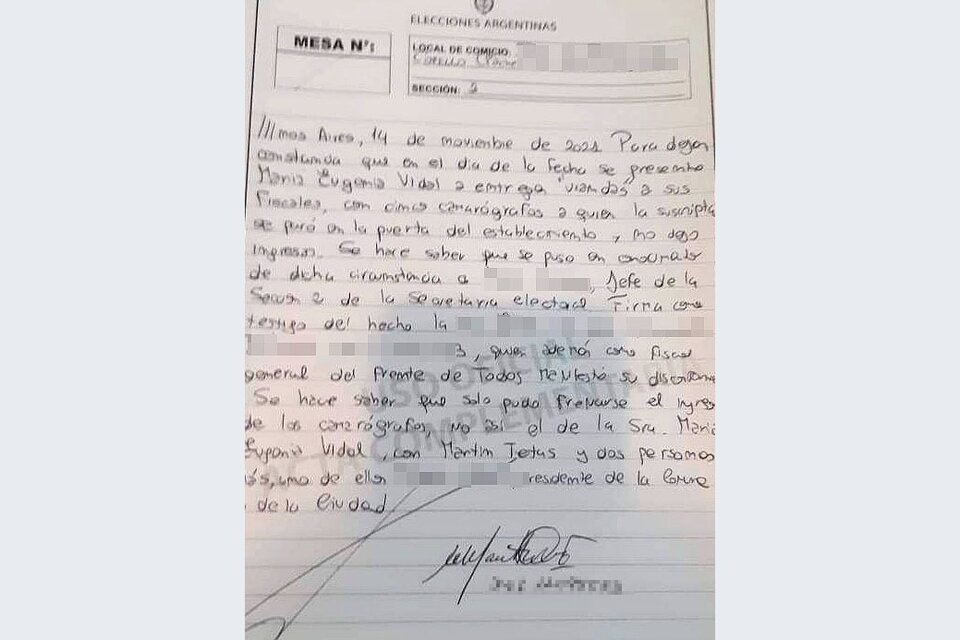 ELECCIONES ARGENTINAS
MESA N°:
LOCAL DE COMICIO:
SECCIÓN: 2
Aires, 14 de noviembre de 2021 Para dejar
constancia que en el dia de la fecha se presento
Maria Eugenia Vidal a entregar "viandas" a sus
Fiscales, con cinco camarógrafos a quien la suscripta
se paró en la puerta del establecimiento y no dejo
ingresar. Se hace saber que se puso en
de dicha circunstancia a , Jefe de la
2 de la Secretaria electoral Firma como
testigo del hecho la
3, quien además como fiscal
general del Frente de Todos su
Se hace saber que solo pudo el
de los camarógrafos, no así el de la Sra. Maria
Eugenia Vidal, con Martin y dos personas
más, una de ellas residente de la
de la Ciudad
USO OFICIAL
ACTA COMPLEMENTARIA